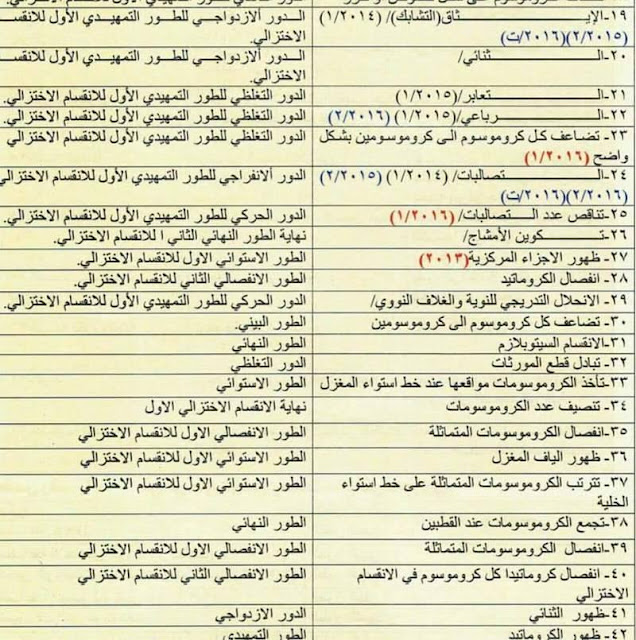 ١٩-الإيثاق(التشابك)/ (١/٢٠١٤) الدور الازدواجي للطور التمهيدي الأول للانقسام
(٢/٢٠١٥)(٢٠١٦/ت) الاختزالي.
٢٠-الثنائي/ الدور الازدواجي للطور التمهيدي الأول للانقسام
الاختزالي.
٢١-التعابر/(١/٢٠١٥) الدور التغلظي للطور التمهيدي الأول للانقسام الاختزالي.
٢٢-الرباعي/(١/٢٠١٥) (٢/٢٠١٦) الدور التغلظي للطور التمهيدي الأول للانقسام الاختزالي.
٢٣- تضاعف كل كروموسوم الى كروموسومين بشكل الدور التغلظي للطور التمهيدي الأول للانقسام الاختزالي
واضح (١/٢٠١٦)
٢٤-التصالبات/ (١/٢٠١٤) (٢/٢٠١٥) الدور ألانفراجي للطور التمهيدي الأول للانقسام الاختزالي.
(٢/٢٠١٦)(٢٠١٦/ت)
٢٥-تناقص عدد التصالبات/ (١/٢٠١٦) الدور الحركي للطور التمهيدي الأول للانقسام الاختزالي.
٢٦-تكوين الأمشاج/ نهاية الطور النهائي الثاني ا للانقسام الاختزالي.
٢٧- ظهور الاجزاء المركزية(٢٠١٣) الطور الاستوائي الاول للانقسام الاختزالي.
٢٨- انفصال الكروماتيد الطور الانفصالي الثاني للانقسام الاختزالي
٢٩- الانحلال التدريجي للنوية والغلاف النووي/ الدور الحركي للطور التمهيدي الأول للانقسام الاختزالي.
٣٠- تضاعف كل كروموسوم الى كروموسومين الطور البيني.
٣١- الانقسام السيتوبلازم الطور النهائي
٣٢- تبادل قطع المورثات الدور التغلظي
٣٣-تأخذ الكروموسومات مواقعها عند خط استواء المغزل الطور الاستوائي
٣٤- تنصيف عدد الكروموسومات نهاية الانقسام الاختزالي الاول
٣٥-انفصال الكروموسومات المتماثلة الطور الانفصالي الاول للانقسام الاختزالي
٣٦- ظهور الياف المغزل الطور الاستوائي الاول للانقسام الاختزالي
٣٧- تترتب الكروموسومات المتماثلة على خط استواء الطور الاستوائي الاول للانقسام الاختزالي
الخلية
٣٨-تجمع الكروموسومات عند القطبين الطور النهائي
٣٩-انفصال الكروموسومات المتماثلة الطور الانفصالي الاول للانقسام الاختزالي
٤٠- انفصال كروماتيدا كل كروموسوم في الانقسام الطور الانفصالي الثاني للانقسام الاختزالي
الاختزالي
٤١-ظهور الثنائي الدور الازدواجي
٤٢- ظهور الكروماتيد الطور التمهيدي